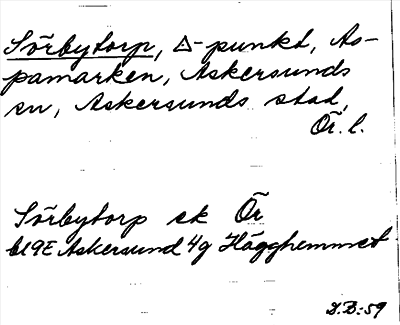 Sörbytorp, △-punkt, As-
pamarken, Askersunds
sn, Askersunds stad,
Ör. l.
Sörbytorp ek Ör
bl 9E Askersund 4g Hägghemmet
D.B:59